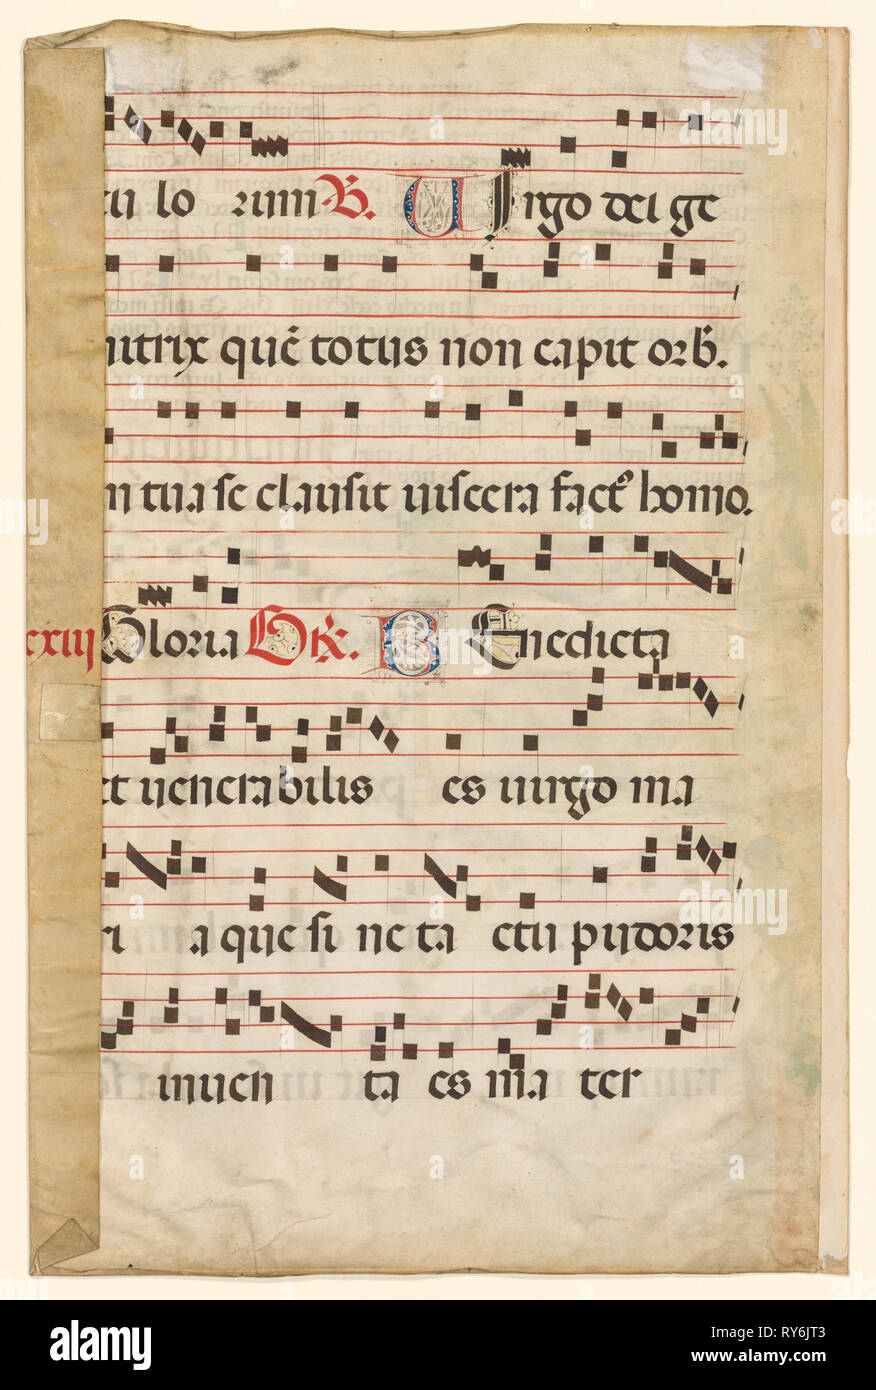 cu lo rum ℟. Uirgo dei ge
nitrix quē totus non capit orb̄.
in tua se clausit uiscera factꝰ homo.
cxiij Gloria GR̄. Benedicta
et uenerabilis es uirgo ma
ri a que si ne ta ctu pudoris
inuen ta es ma ter
alamy
alamy
Image ID: RY6JT3
www.alamy.com